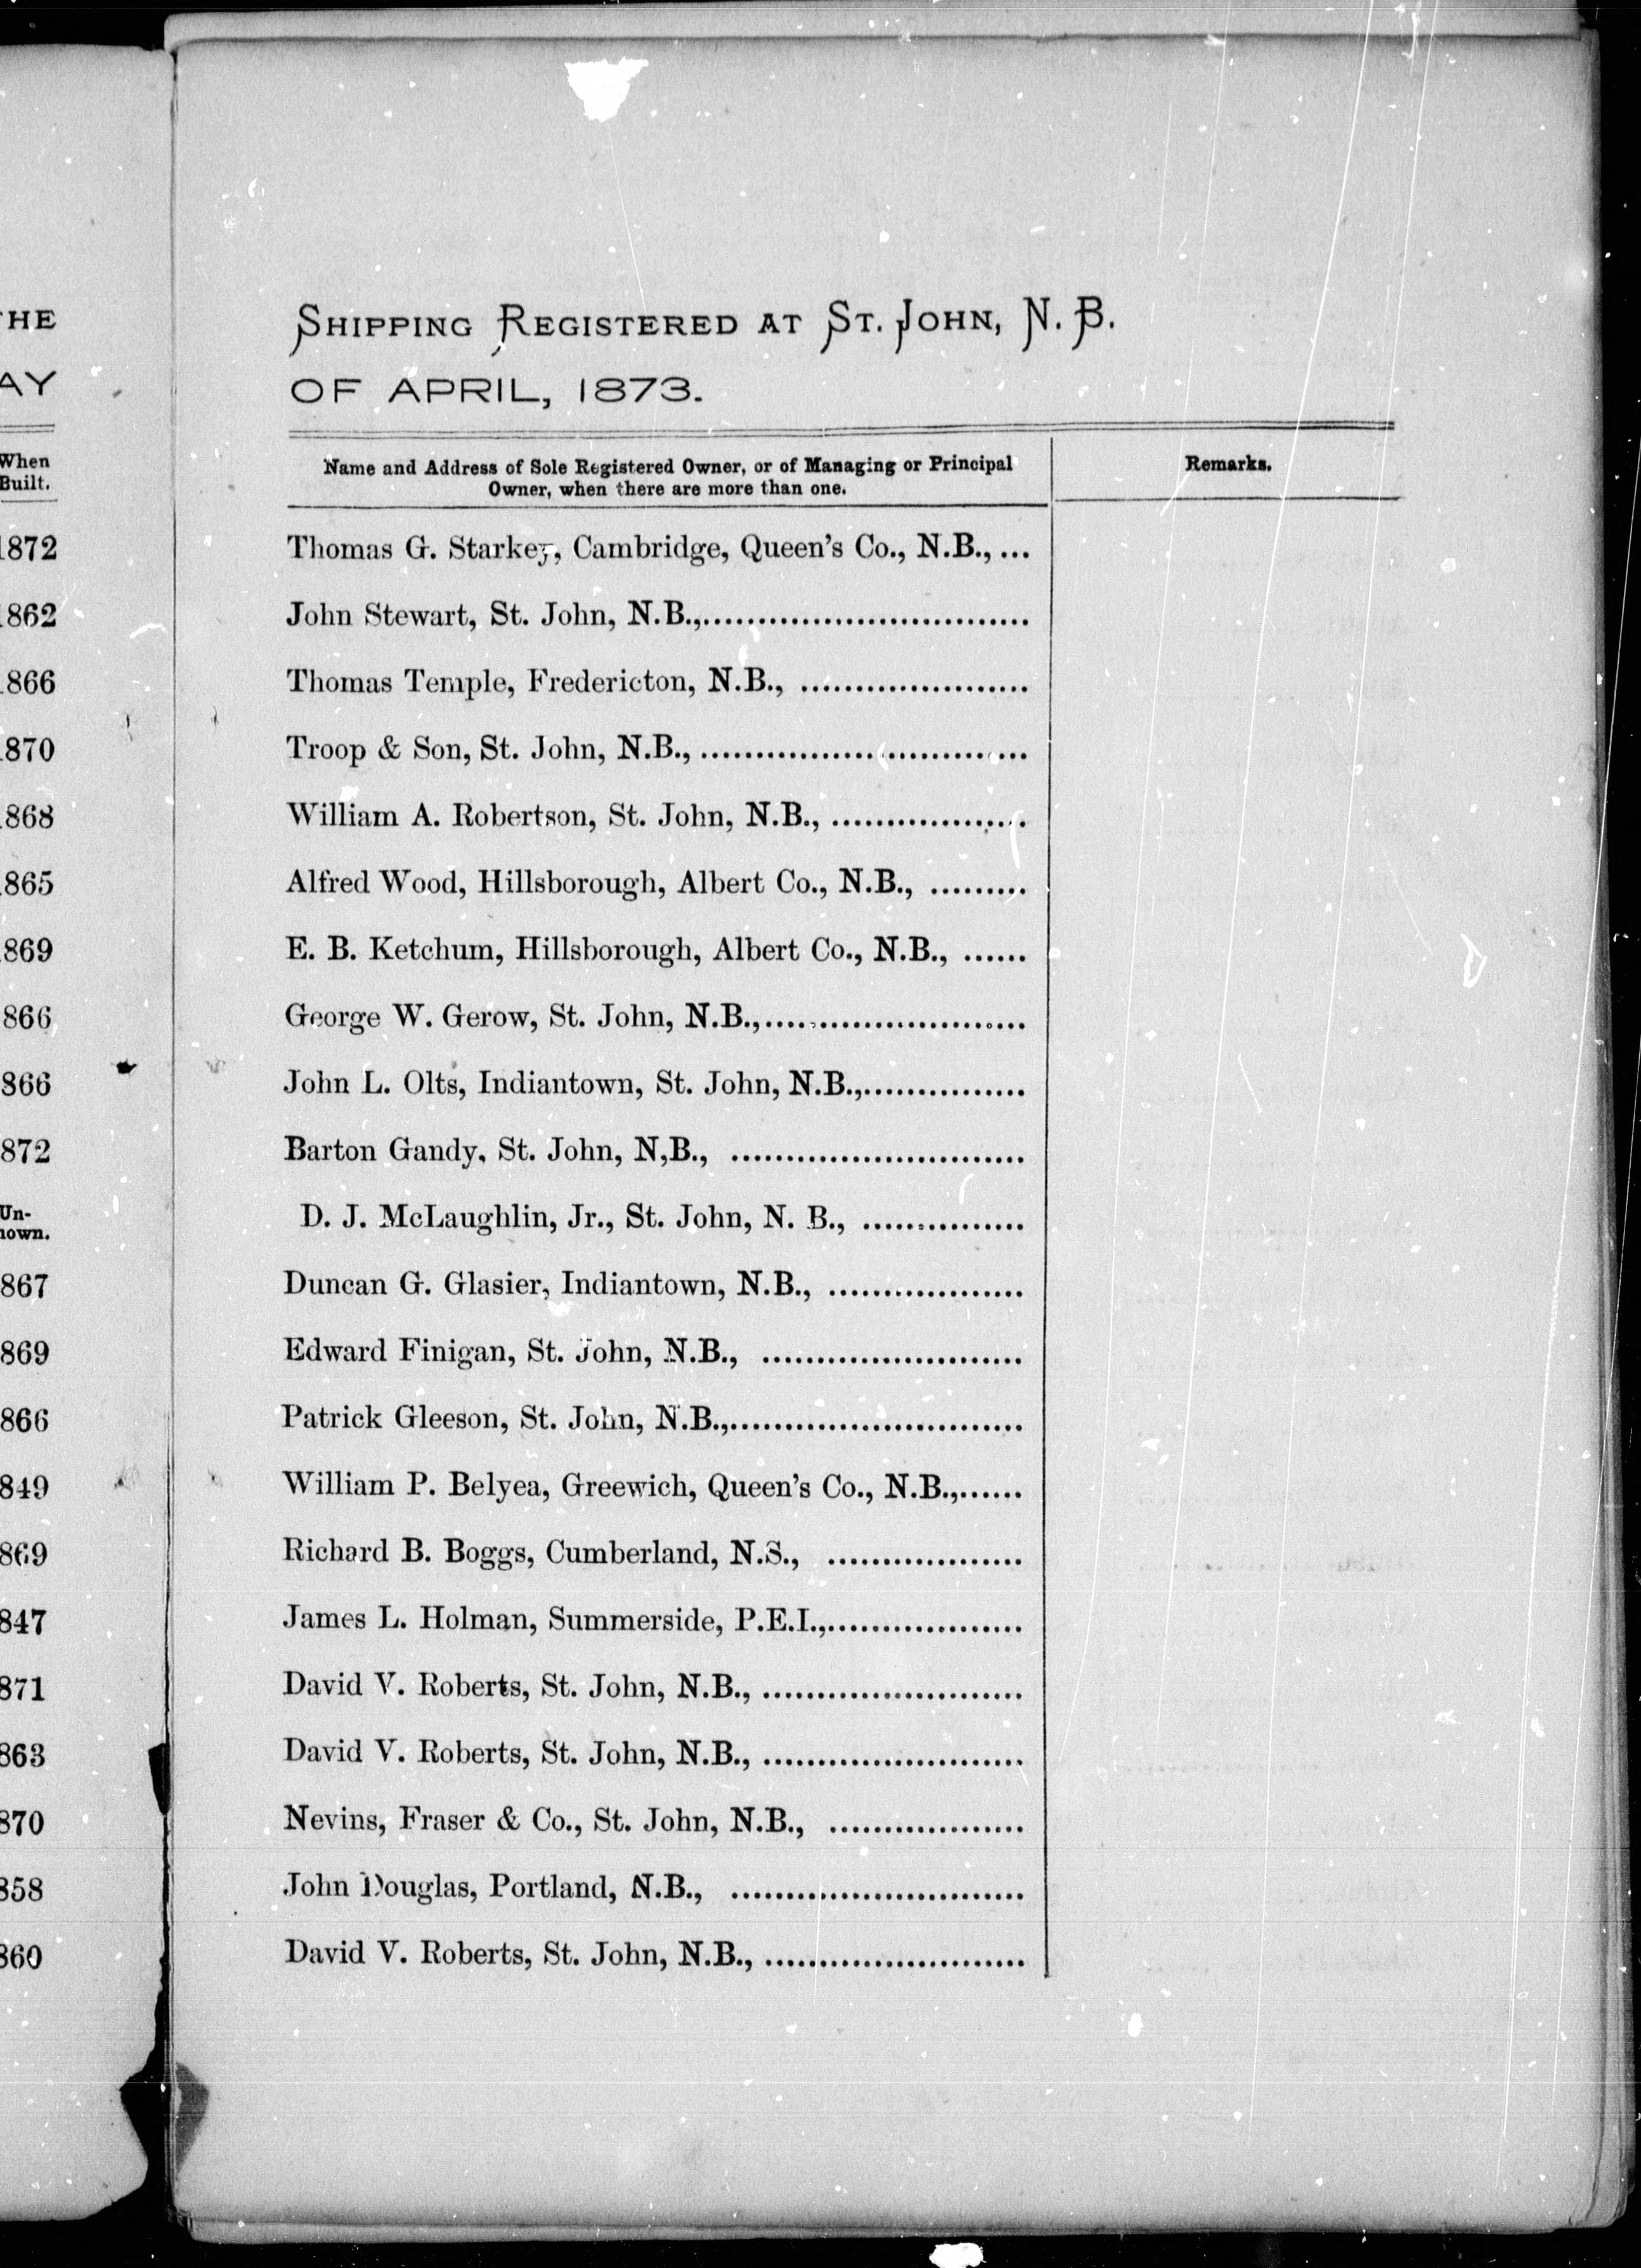 HE
AY
When
Built.
1872
1862
1866
1870
1868
1865
1869
1866
1866
1872
Un-
nown.
1867
869
866
849
869
847
871
863
870
858
860
Shipping Registered at St. John, N. B.
OF APRIL, 1873.
Name and Address of Sole Registered Owner, or of Managing or Principal
Owner, when there are more than one.
Remarks.
Thomas G. Starkey, Cambridge, Queen's Co., N.B., ...
John Stewart, St. John, N.B.,..............................
Thomas Temple, Fredericton, N.B., .....................
Troop & Son, St. John, N.B., ..............................
William A. Robertson, St. John, N.B., ..................
Alfred Wood, Hillsborough, Albert Co., N.B., .........
E. B. Ketchum, Hillsborough, Albert Co., N.B., ......
George W. Gerow, St. John, N.B.,........................
John L. Olts, Indiantown, St. John, N.B.,...............
Barton Gandy, St. John, N,B., ...........................
D. J. McLaughlin, Jr., St. John, N. B., ...............
Duncan G. Glasier, Indiantown, N.B., ..................
Edward Finigan, St. John, N.B., ........................
Patrick Gleeson, St. John, N.B.,...........................
William P. Belyea, Greewich, Queen's Co., N.B.,......
Richard B. Boggs, Cumberland, N.S., ..................
James L. Holman, Summerside, P.E.I.,..................
David V. Roberts, St. John, N.B., ........................
David V. Roberts, St. John, N.B., ........................
Nevins, Fraser & Co., St. John, N.B., ..................
John Douglas, Portland, N.B., ...........................
David V. Roberts, St. John, N.B., ........................